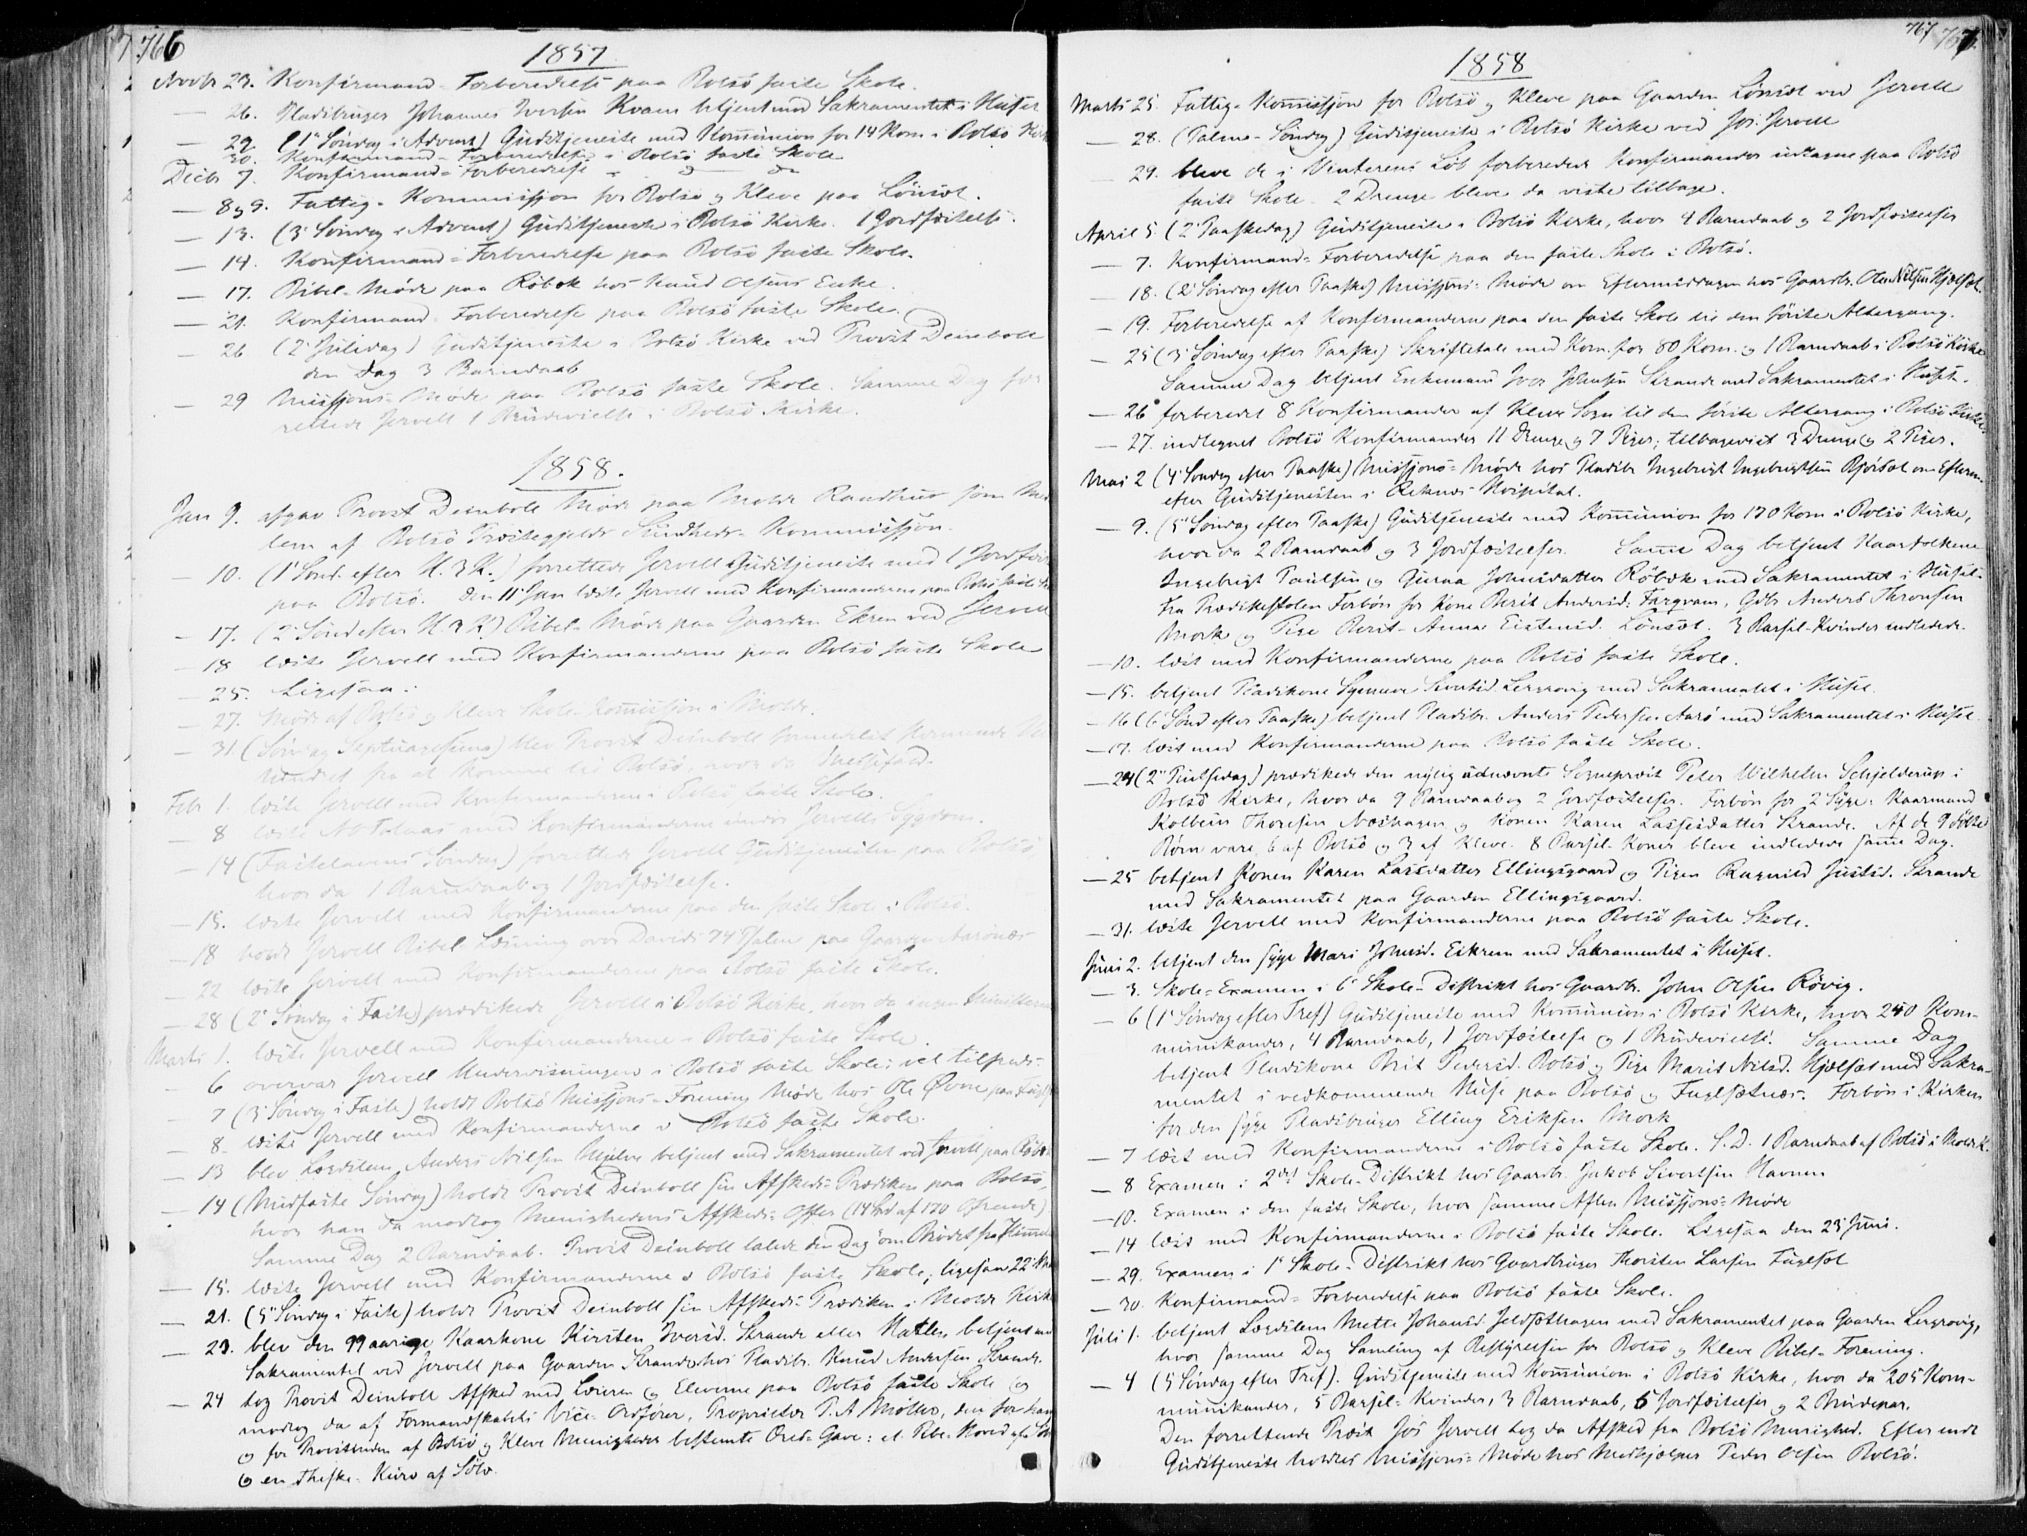 766
1857
Novbr 23. Konfirmand-Forberedelse paa Bolsö faste Skole.
— 26. Pladsbruger Johannes Iversen Kvam betjent med Sakramentet i Huset
— 29 (1ste Söndag i Advent) Gudstjeneste med Kommunion for 14 Kom. i Bolsö Kirke
— 30. Konfirmand-Forberedelse i Bolsö faste Skole
Decbr 7. Konfirmand-Forberedelse
— 8 og 9. Fattig-Kommission for Bolsö og Kleve paa Lönset.
— 13. (3' Söndag i Advent) Gudstjeneste i Bolsö Kirke. 1 Jordfæstelse.
— 14. Konfirmand-Forberedelse paa Bolsö faste Skole.
— 17. Bibel-Möde paa Röbek hos Knud Olsens Enke.
— 21. Konfirmand-Forberedelse paa Bolsö faste Skole.
— 26 (2' Juledag) Gudstjeneste i Bolsö Kirke ved Provst Deinboll
den Dag 3 Barnedaab
— 29 Missions-Möde paa Bolsö faste Skole. Samme Dag for
rettede Jervell 1 Brudevielse i Bolsö Kirke.
1858.
Jan 9. afgav Provst Deinboll Möde paa Molde Raadhus som Med
lem af Bolsö Præstegjelds Sundheds-Kommission.
— 10. (1' Sönd. efter H. 3 K.) forrettede Jervell Gudstjeneste med 1 Jordfæst
paa Bolsö. Den 11' Jan læste Jervell med Konfirmanderne paa Bolsö faste Sk
— 17. (2' Sönd efter H. 3 K.) Bibel-Möde paa Gaarden Ekrem ved Jervell
— 18 læste Jervell med Konfirmanderne paa Bolsö faste Skole
— 25. Ligesaa.
— 27. Möde af Bolsö og Kleve Skole-Kommission i Molde.
— 31. (Söndag Septuagesima) blev Provst Deinboll formedelst
hindret fra at komme til Bolsö, hvor da Messefald.
Febr 1. læste Jervell med Konfirmanderne i Bolsö faste Skole.
— 8 læste med Konfirmanderne under Jervells Sygdom.
— 14 (Fastelavens Söndag) forrettede Jervell Gudstjenesten paa Bolsö
hvor da 1 Barnedaab og 1 Jordfæstelse.
— 15. læste Jervell med Konfirmanderne paa den faste Skole i Bolsö.
— 18 holdt Jervell Bibel-Læsning over Davids 74 Psalme paa Gaarden Aarönæs
— 22 læste Jervell med Konfirmanderne paa Bolsö faste Skole.
— 28 (2' Söndag i Faste) prædikede Jervell i Bolsö Kirke, hvor da ingen
Marts 1. læste Jervell med Konfirmanderne i Bolsö faste Skole.
— 6 overvar Jervell Undervisningen i Bolsö faste Skole;
— 7 (3' Söndag i Faste) holdt Bolsö Missions-Forening Möde hos Ole Övne paa
— 8. læste Jervell med Konfirmanderne i Bolsö faste Skole.
— 13 blev Lægdslem Anders Nilsen betjent med Sakramentet ved Jervell paa Röbek
— 14 (Midfaste Söndag) holdt Provst Deinboll sin Afskeds-Prædiken paa Bolsö,
hvor han da modtog Menighedens Afskeds-Offer (14 Spd af 170 Ofrende).
Samme Dag 2 Barnedaab. Provst Deinboll talede den Dag om Brödet fra Himmel
— 15. læste Jervell med Konfirmanderne i Bolsö faste Skole; ligesaa 22'
21. (5' Söndag i Faste) holdt Provst Deinboll sin Afskeds-Prædiken i Molde Kirke
— 23. blev den 99 aarige Kaarkone Kirsten Iversd. Strande eller Hatlen betjent med
Sakramentet ved Jervell paa Gaarden Strande hos Pladsbr. Knud Andersen Strande.
— 24 tog Provst Deinboll Afsked med Læreren og Eleverne paa Bolsö faste Skole og
modtog da af Formandskabets Vice-Ordförer, Proprietær P. A. Möller, den for ham
og for Provstinden af Bolsö og Kleve Menigheder bestemte Æres-Gave: et Pibe-Hoved af
og en Theske-Kurv af Sölv.
767 767.
1858
Marts 25. Fattig-Kommission for Bolsö og Kleve paa Gaarden Lönset ved Jervell
— 28. (Palme-Söndag) Gudstjeneste i Bolsö Kirke ved Jos. Jervell
29. bleve de i Vinterens Löb forberedede Konfirmander udtagne paa Bolsö
faste Skole. 2 Drenge bleve da viste tilbage.
April 5. (2' Paaskedag) Gudstjeneste i Bolsö Kirke, hvor 4 Barnedaab og 2 Jordfæstelser
— 7. Konfirmand-Forberedelse paa den faste Skole i Bolsö.
18. (2' Söndag efter Paaske) Missions-Möde om Eftermiddagen hos Gaardbr. Ole Nilsen Hjelset.
— 19. Forberedelse af Konfirmanderne paa den faste Skole til den förste Altergang.
— 25 (3' Söndag efter Paaske) Skriftetale med Kom. for 80 Kom. og 1 Barnedaab i Bolsö Kirke
Samme Dag betjent Enkemand Iver Johnsen Strande med Sakramentet i Huset.
— 26 forberedet 8 Konfirmander af Kleve Sogn til den förste Altergang i Bolsö Kirke.
— 27. indtegnet Bolsö Konfirmander 11 Drenge og 7 Piger; tilbagevist 3 Drenge og 2 Piger.
Mai 2 (4' Söndag efter Paaske) Missions-Möde hos Pladsbr Ingebrigt Ingebrigtsen Bjórset om Efterm.
efter Gudstjenesten i Reknæs Hospital.
— 9. (5' Söndag efter Paaske) Gudstjeneste med Kommunion for 170 Kom i Bolsö Kirke,
hvor da 2 Barnedaab og 3 Jordfæstelser. Samme Dag betjent Kaarfolkene
Ingebrigt Paulsen og Guroa Johnsdatter Röbek med Sakramentet i Huset.
Fra Prædikestolen Forbön for Kone Berit Andersd. Fargvam, Gdbr Anders Thronsen
Mork og Pige Berit-Anna Eistensd. Lönset. 3 Barsel-Kvinder indledede.
— 10. læst med Konfirmanderne paa Bolsö faste Skole.
— 15. betjent Pladskone Synneve Sivertsd. Lergrovig med Sakramentet i Huset.
— 16 (6' Sönd efter Paaske) betjent Pladsbr. Anders Pedersen Aarö med Sakramentet i Huset
— 17. læst med Konfirmanderne paa Bolsö faste Skole.
— 24 (2' Pintsedag) prædikede den nylig udnævnte Sognepræst Peter Wilhelm Schjelderup i
Bolsö Kirke, hvor da 9 Barnedaab og 2 Jordfæstelser. Forbön for 2 Syge: Kaarmand
Kolbein Thoresen Næshagen og Konen Karen Lassesdatter Strande. Af de 9 döbte
Börn vare 6 af Bolsö og 3 af Kleve. 8 Barsel-Koner bleve indledede samme Dag.
— 25 betjent Konen Karen Lassedatter Ellingsgaard og Pigen Ragnild Justsd. Strande
med Sakramentet paa Gaarden Ellingsgaard.
— 31. læste Jervell med Konfirmanderne paa Bolsö faste Skole.
Juni 2. betjent den syge Mari Johnsd. Eikrem med Sakramentet i Huset.
— 3. Skole-Examen i 6' Skole-Distrikt hos Gaardbr. John Olsen Rövig.
— 6 (1' Söndag efter Tref) Gudstjeneste med Kommunion i Bolsö Kirke, hvor 240 Kom-
munikander, 4 Barnedaab, 1 Jordfæstelse og 1 Brudevielse. Samme Dag
betjent Pladskone Brit Pedersd. Bolsö og Pige Marit Nilsd. Hjelset med Sakra-
mentet i vedkommende Huse paa Bolsö og Fuglsetnæs. Forbön i Kirken
for den syge Pladsbruger Elling Eriksen Mork
— 7 læst med Konfirmanderne i Bolsö faste Skole. S. D. 1 Barnedaab af Bolsö i Molde K.
— 8 Examen i 2det Skole-Distrikt hos Gaardbr. Jakob Sivertsen Havnen
— 10. Examen i den faste Skole, hvor samme Aften Missions-Möde
— 14 læst med Konfirmanderne i Bolsö faste Skole. Ligesaa den 23' Juni.
— 29. Examen i 1' Skole-Distrikt hos Gaardbruger Thorsten Larsen Fuglset
— 30. Konfirmand-Forberedelse paa Bolsö faste Skole.
Juli 1. betjent Lægdslem Mette Johansd. Jeldsethagen med Sakramentet paa Gaarden Lergrovig,
hvor samme Dag Samling af Bestyrelsen for Bolsö og Kleve Bibel-Forening.
— 4 (5 Söndag efter Tref). Gudstjeneste med Kommunion i Bolsö Kirke, hvor da 205 Kom-
munikander, 5 Barsel-Kvinder, 3 Barnedaab, 5 Jordfæstelser og 2 Brudepar.
Den forrettende Præst Jos Jervell tog da Afsked fra Bolsö Menighed. Efter endt
Gudstjeneste holdtes Missions-Möde hos Medhjælper Peder Olsen Bolsö.